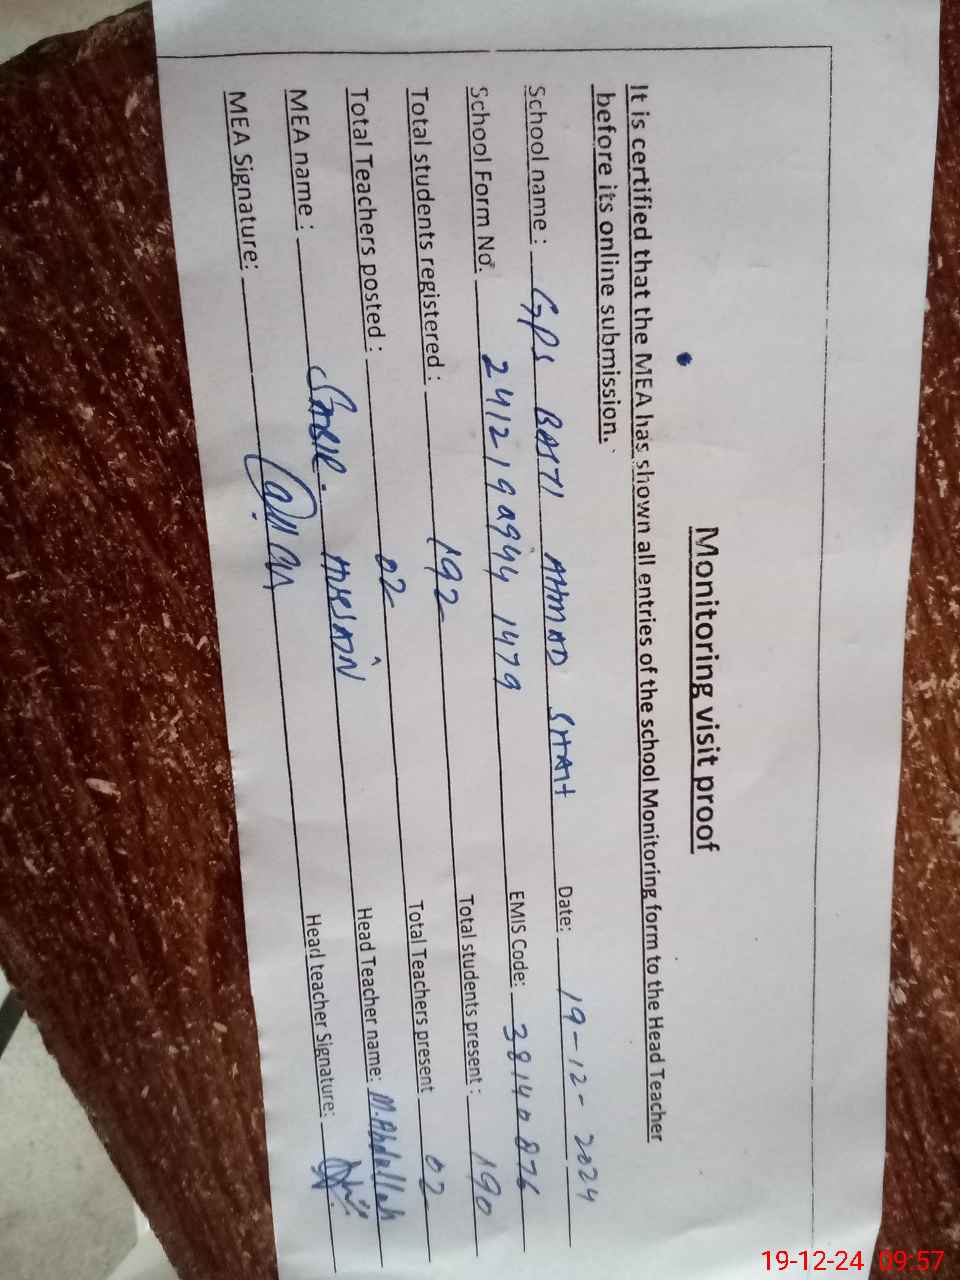 Monitoring visit proof
It is certified that the MEA has shown all entries of the school Monitoring form to the Head Teacher
before its online submission.
School name : GPS BASTI AHMAD SHAH Date: 19-12-2024
School Form No. 241219094 1479 EMIS Code: 38140076
Total students registered : 192 Total students present : 190
Total Teachers posted : 02 Total Teachers present 02
MEA name : SABIR. Head Teacher name: M.Abdullah
MEA Signature: Head teacher Signature:
19-12-24 09:57